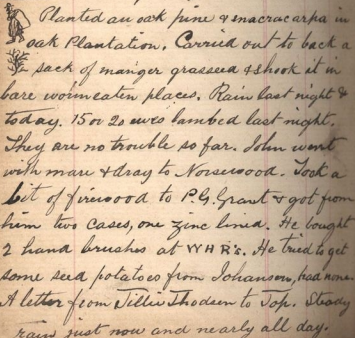 Planted an oak pine & macrocarpa in
oak Plantation. Carried out to back a
sack of manger grasseed & shook it in
bare wormeaten places. Rain last night &
today. 15 or 20 ewes lambed last night.
They are no trouble so far. John went
with mare & dray to Norsewood. Took a
bit of firewood to P.G. Grant & got from
him two cases, one zinc lined. He bought
2 hand brushes at WHR's. He tried to get
some seed potatoes from Johansen, had none.
A letter from Tillie Thodsen to Top. Steady
rain just now and nearly all day.